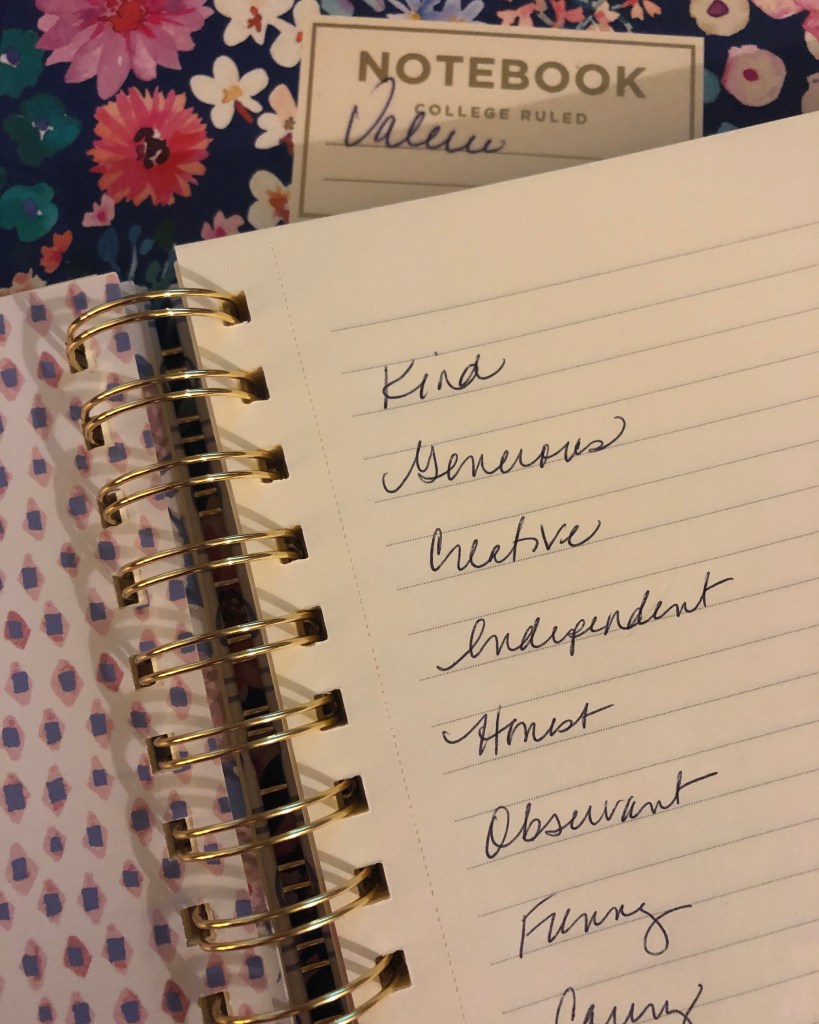 NOTEBOOK
COLLEGE RULED
Valerie
Kind
Generous
Creative
Independent
Honest
Observant
Funny